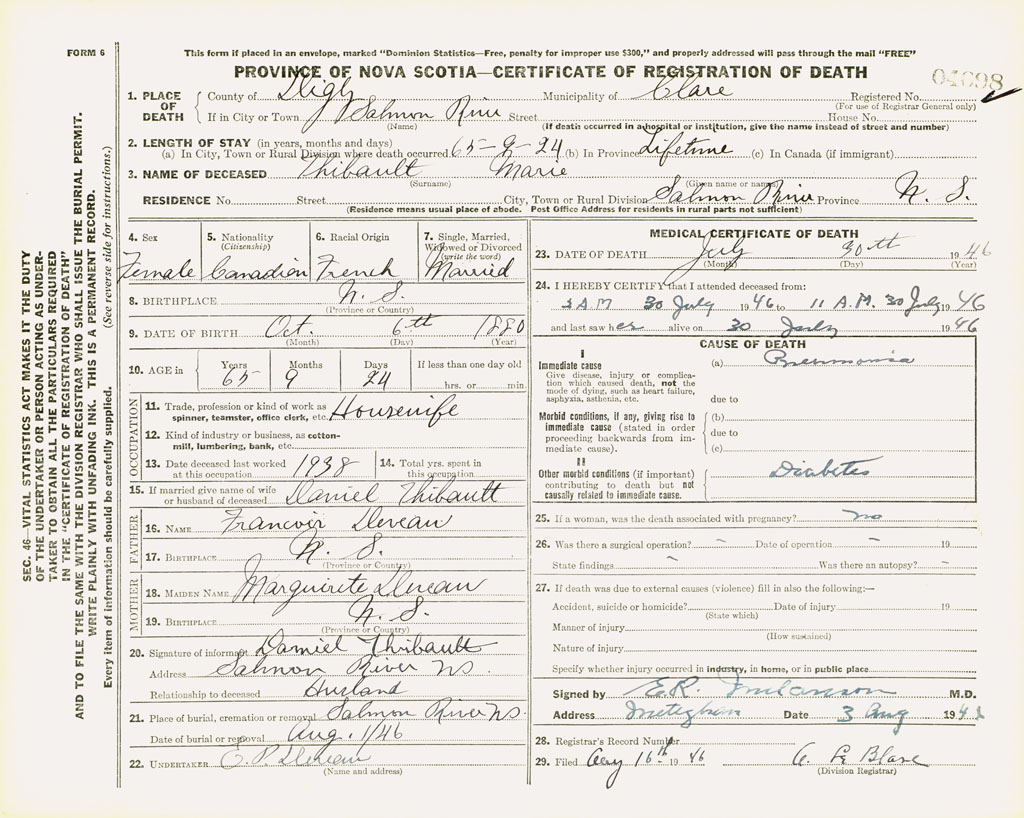 FORM 6
This form if placed in an envelope, marked "Dominion Statistics—Free, penalty for improper use $300," and properly addressed will pass through the mail "FREE"
PROVINCE OF NOVA SCOTIA—CERTIFICATE OF REGISTRATION OF DEATH
04098
1. PLACE OF DEATH
County of Digby Municipality of Clare Registered No.
(For use of Registrar General only)
If in City or Town Salmon River Street House No.
(Name) (If death occurred in a hospital or institution, give the name instead of street and number)
2. LENGTH OF STAY (in years, months and days)
(a) In City, Town or Rural Division where death occurred 65-9-24 (b) In Province Lifetime (c) In Canada (if immigrant)
3. NAME OF DECEASED Thibault Marie
(Surname) (Given name or names)
RESIDENCE No. Street City, Town or Rural Division Salmon River Province N. S.
(Residence means usual place of abode. Post Office Address for residents in rural parts not sufficient)
4. Sex Female
5. Nationality (Citizenship) Canadian
6. Racial Origin French
7. Single, Married, Widowed or Divorced (write the word) Married
8. BIRTHPLACE N. S.
(Province or Country)
9. DATE OF BIRTH Oct. 6th 1880
(Month) (Day) (Year)
10. AGE in Years 65 Months 9 Days 24 If less than one day old hrs. or min.
OCCUPATION
11. Trade, profession or kind of work as spinner, teamster, office clerk, etc. Housewife
12. Kind of industry or business, as cotton-mill, lumbering, bank, etc.
13. Date deceased last worked at this occupation 1938
14. Total yrs. spent in this occupation
15. If married give name of wife or husband of deceased Daniel Thibault
FATHER
16. NAME Francois Deveau
17. BIRTHPLACE N. S.
(Province or Country)
MOTHER
18. MAIDEN NAME Marguirite Deveau
19. BIRTHPLACE N. S.
(Province or Country)
20. Signature of informant Daniel Thibault
Address Salmon River NS.
Relationship to deceased Husband
21. Place of burial, cremation or removal Salmon River NS.
Date of burial or removal Aug. 1/46
22. UNDERTAKER Deveau
(Name and address)
MEDICAL CERTIFICATE OF DEATH
23. DATE OF DEATH July 30th 1946
(Month) (Day) (Year)
24. I HEREBY CERTIFY that I attended deceased from:
A.M 30 July 1946 to 11 A.M. 30 July 1946
and last saw her alive on 30 July 1946
CAUSE OF DEATH
I
Immediate cause
Give disease, injury or complication which caused death, not the mode of dying, such as heart failure, asphyxia, asthenia, etc.
(a) Pneumonia
due to
Morbid conditions, if any, giving rise to immediate cause (stated in order proceeding backwards from immediate cause).
(b)
due to
(c)
II
Other morbid conditions (if important) contributing to death but not causally related to immediate cause.
Diabetes
25. If a woman, was the death associated with pregnancy? no
26. Was there a surgical operation? - Date of operation - 19
State findings - Was there an autopsy? -
27. If death was due to external causes (violence) fill in also the following:—
Accident, suicide or homicide? Date of injury 19
(State which)
Manner of injury
(How sustained)
Nature of injury
Specify whether injury occurred in industry, in home, or in public place
Signed by E.R. Melanson M.D.
Address Meteghan Date 3 Aug 194
28. Registrar's Record Number
29. Filed Aug 16th 1946 A. Le Blanc
(Division Registrar)
SEC. 46—VITAL STATISTICS ACT MAKES IT THE DUTY
OF THE UNDERTAKER OR PERSON ACTING AS UNDER-
TAKER TO OBTAIN ALL THE PARTICULARS REQUIRED
IN THE "CERTIFICATE OF REGISTRATION OF DEATH"
AND TO FILE THE SAME WITH THE DIVISION REGISTRAR WHO SHALL ISSUE THE BURIAL PERMIT.
WRITE PLAINLY WITH UNFADING INK. THIS IS A PERMANENT RECORD.
Every item of information should be carefully supplied. (See reverse side for instructions.)